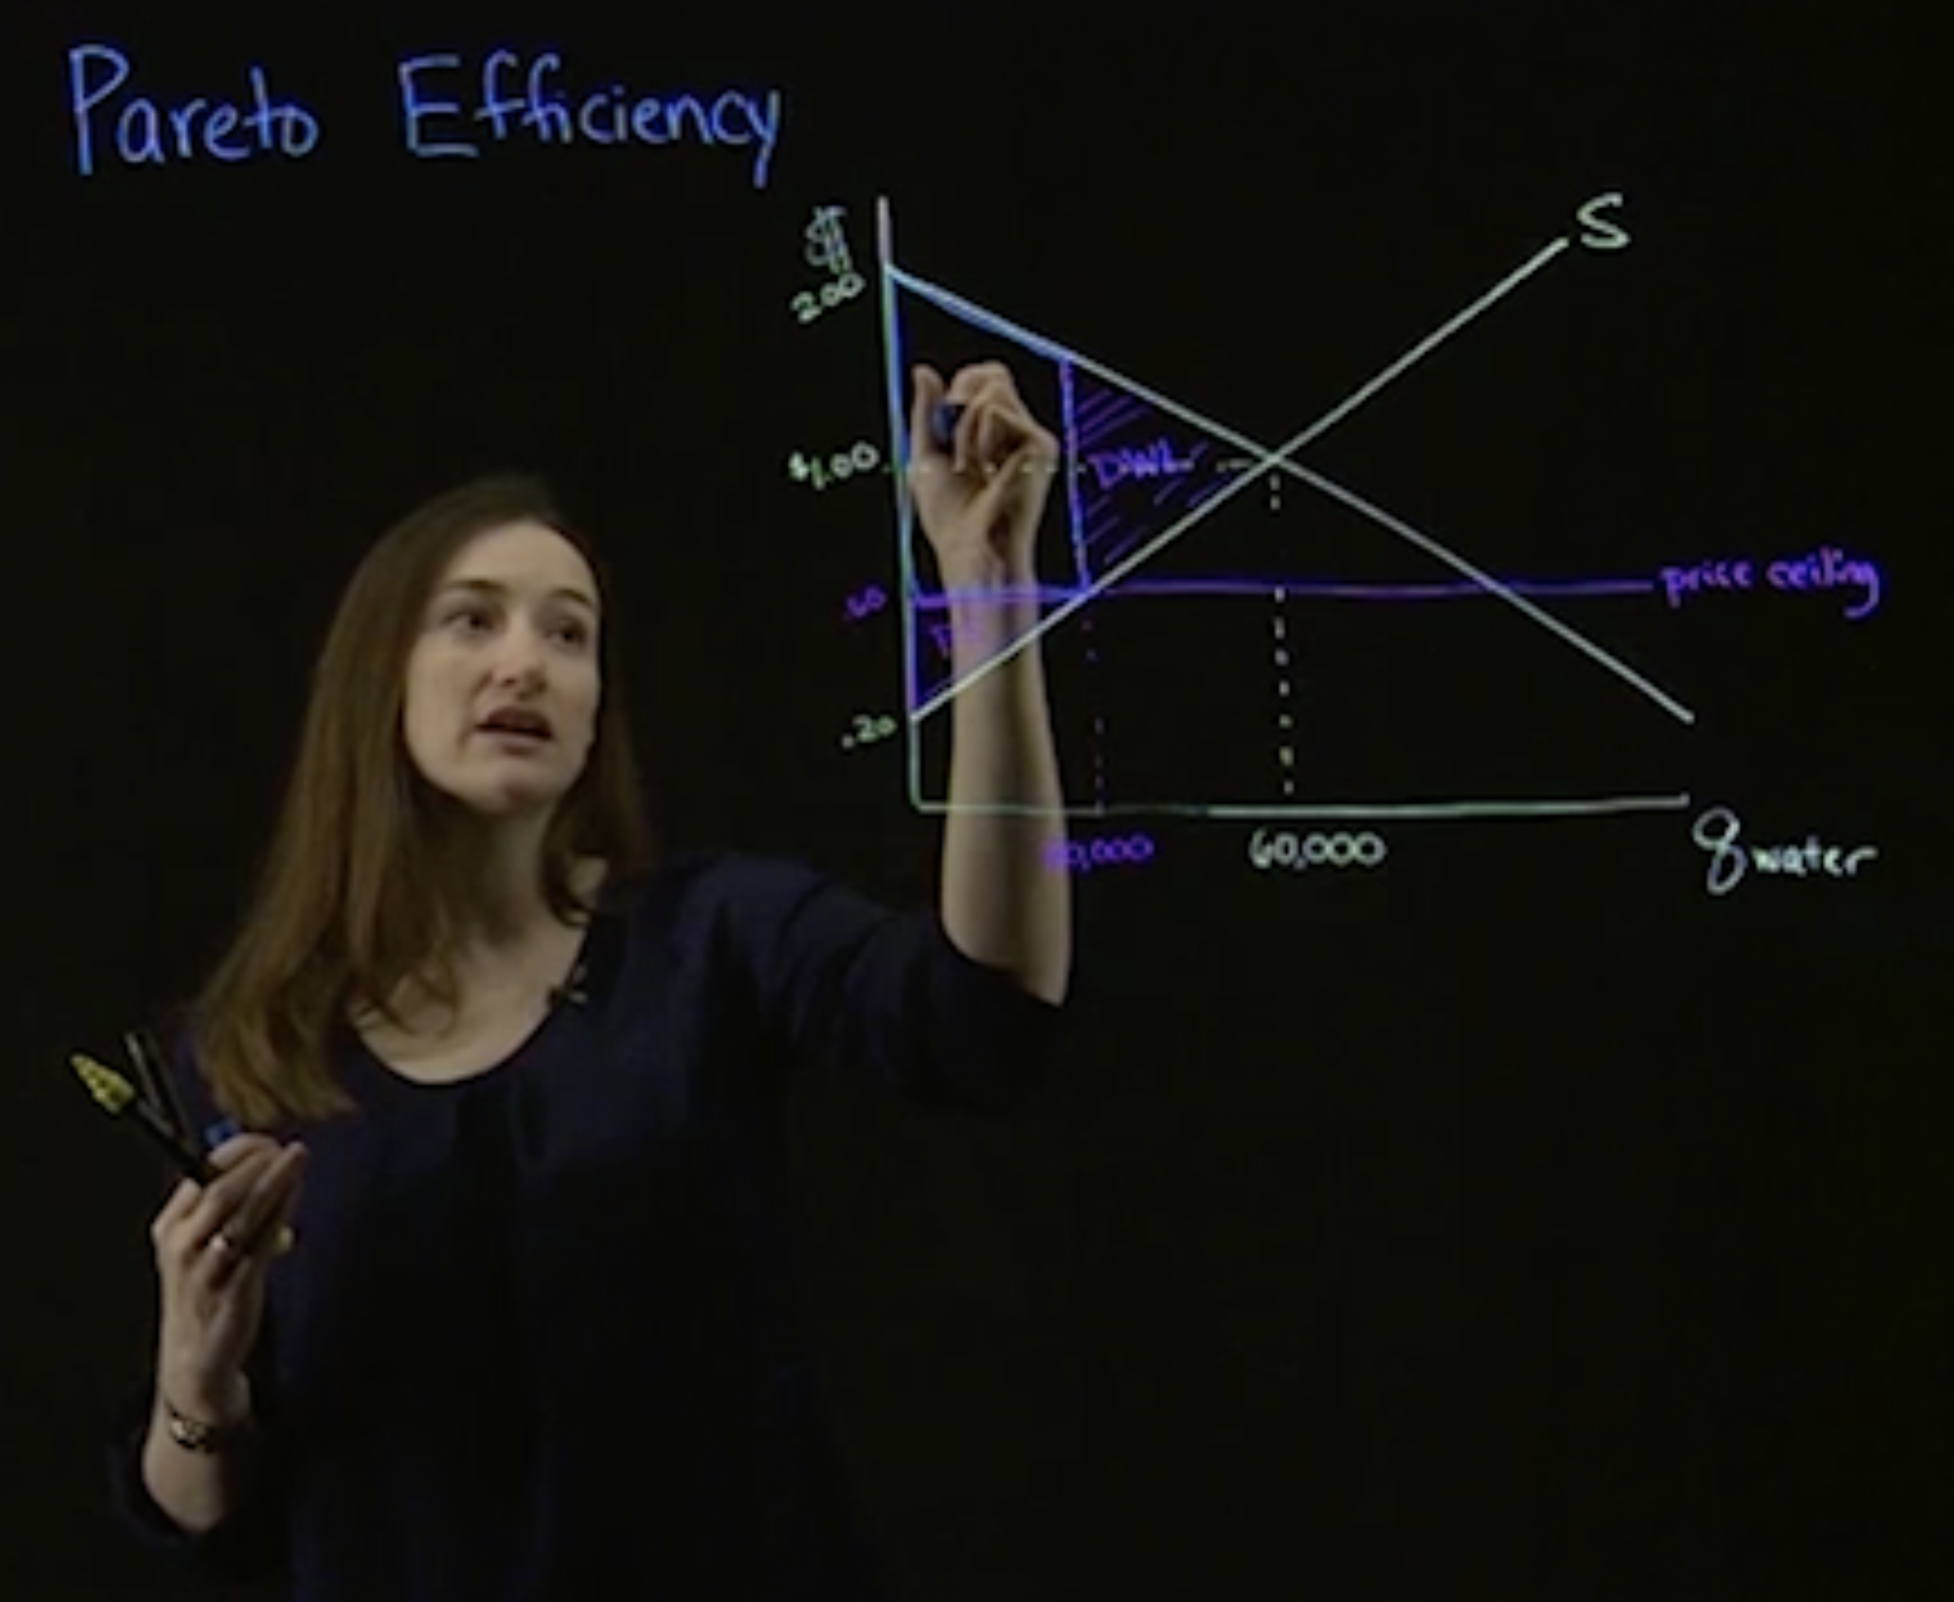 Pareto Efficiency
$
S
2.00
$1.00
DWL
price ceiling
.60
.20
60,000
q water